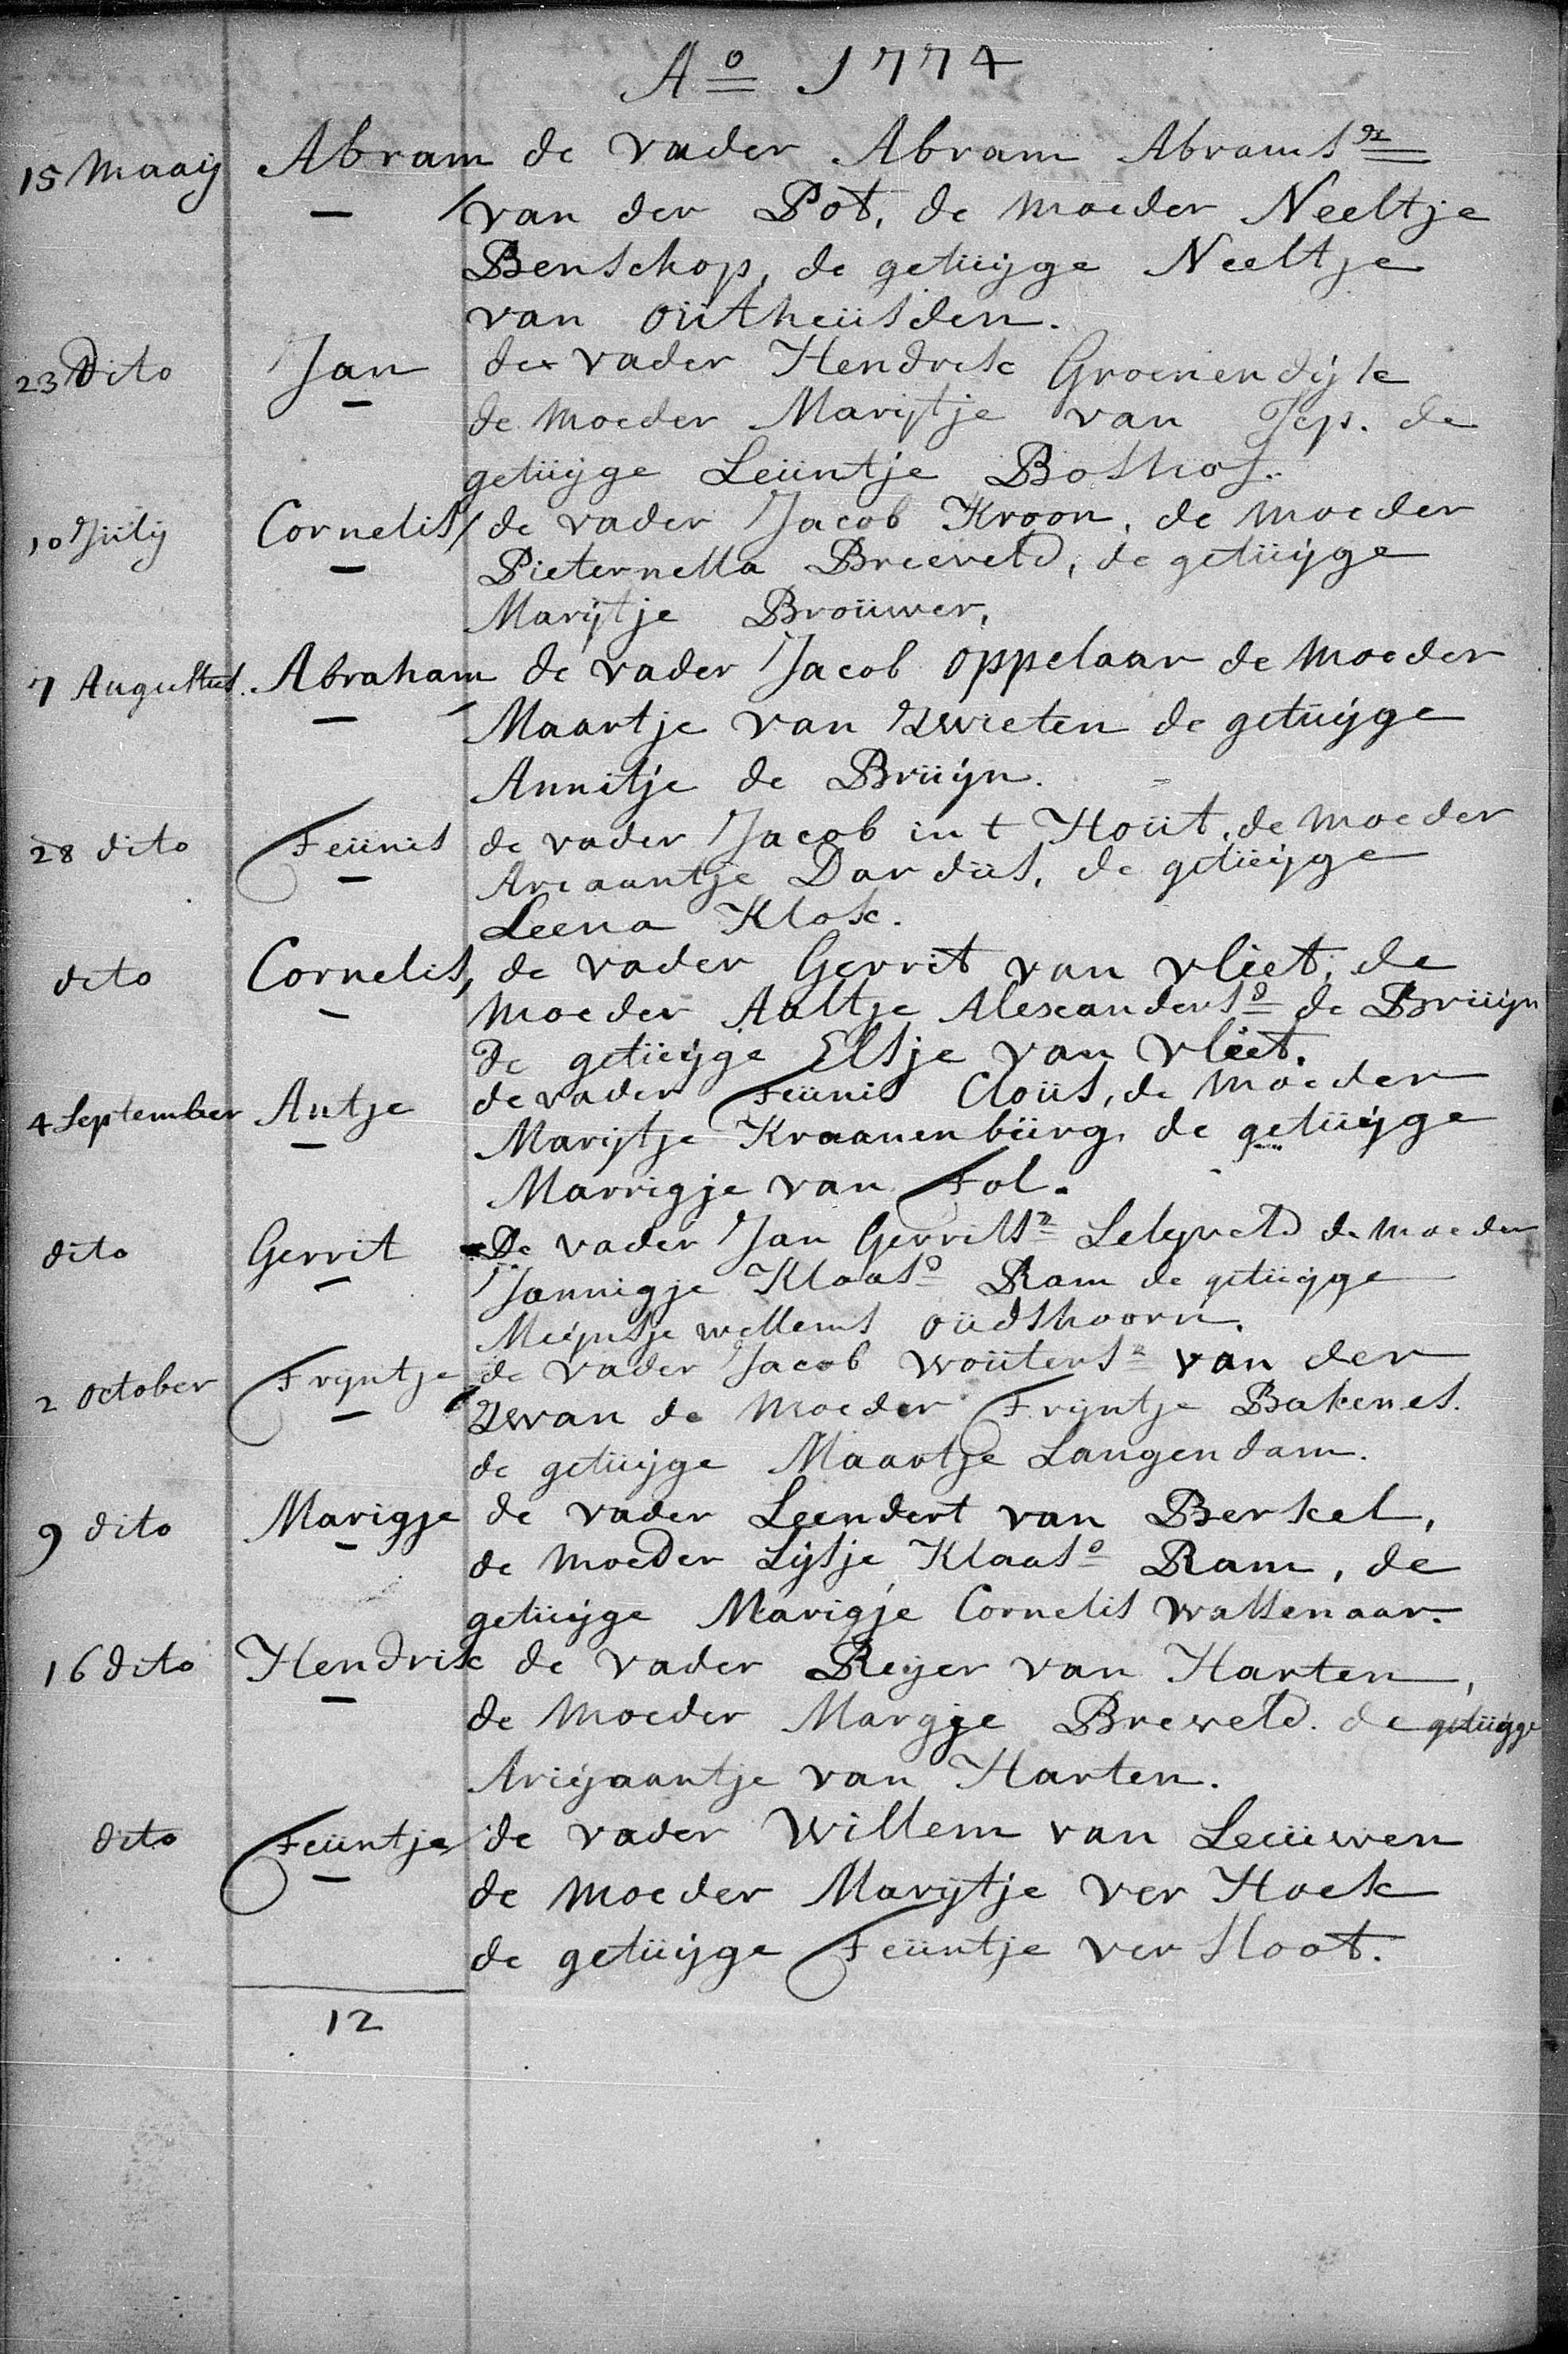 Ao 1774
15 Maaij Abram de vader Abram Abramszn
van der Pot, de moeder Neeltje
Benschop, de getüijge Neeltje
van oütheüsden.
23 Dito Jan de vader Hendrik Groenendijk
de moeder Marijtje van Jep. de
getüijge Leüntje Boshof.
10 Jülij Cornelis de vader Jacob Kroon, de moeder
Pieternella Breeveld, de getüijge
Marijtje Broüwer,
7 Augustus. Abraham de vader Jacob oppelaar de moeder
Maartje van Zwieten de getuijge
Annitje de Brüijn.
28 dito Teünis de vader Jacob in t Hoüt, de moeder
Ariaantje Dardüs, de getüijge
Leena Klok.
dito Cornelis, de vader Gerrit van vliet, de
moeder Aaltje Alexandersd de Brüijn
de getüijge Elsje van vliet.
4 September Antje de vader Teünis Cloüs, de moeder
Marijtje Kraanenbürg, de getüijge
Marrigje van Tol.
dito Gerrit De vader Jan Gerritsz Lelyveld de moeder
Jannigje Klaasd Ram de getüijge
Meijnsje willems oüdshoorn.
2 October Trijntje de vader Jacob woütersz van der
Zwan de moeder Trijntje Bakenes.
de getüijge Maartje Langendam.
9 dito Marigje de vader Leendert van Berkel,
de moeder Lijsje Klaasd Ram, de
getüijge Marigje Cornelis wassenaar.
16 dito Hendrik de vader Reijer van Harten,
de moeder Margje Breveld. de getüijge
Arijaantje van Harten.
dito Teüntje de vader Willem van Leeüwen
de moeder Marijtje ver Hoek
de getüijge Teüntje ver sloot.
12